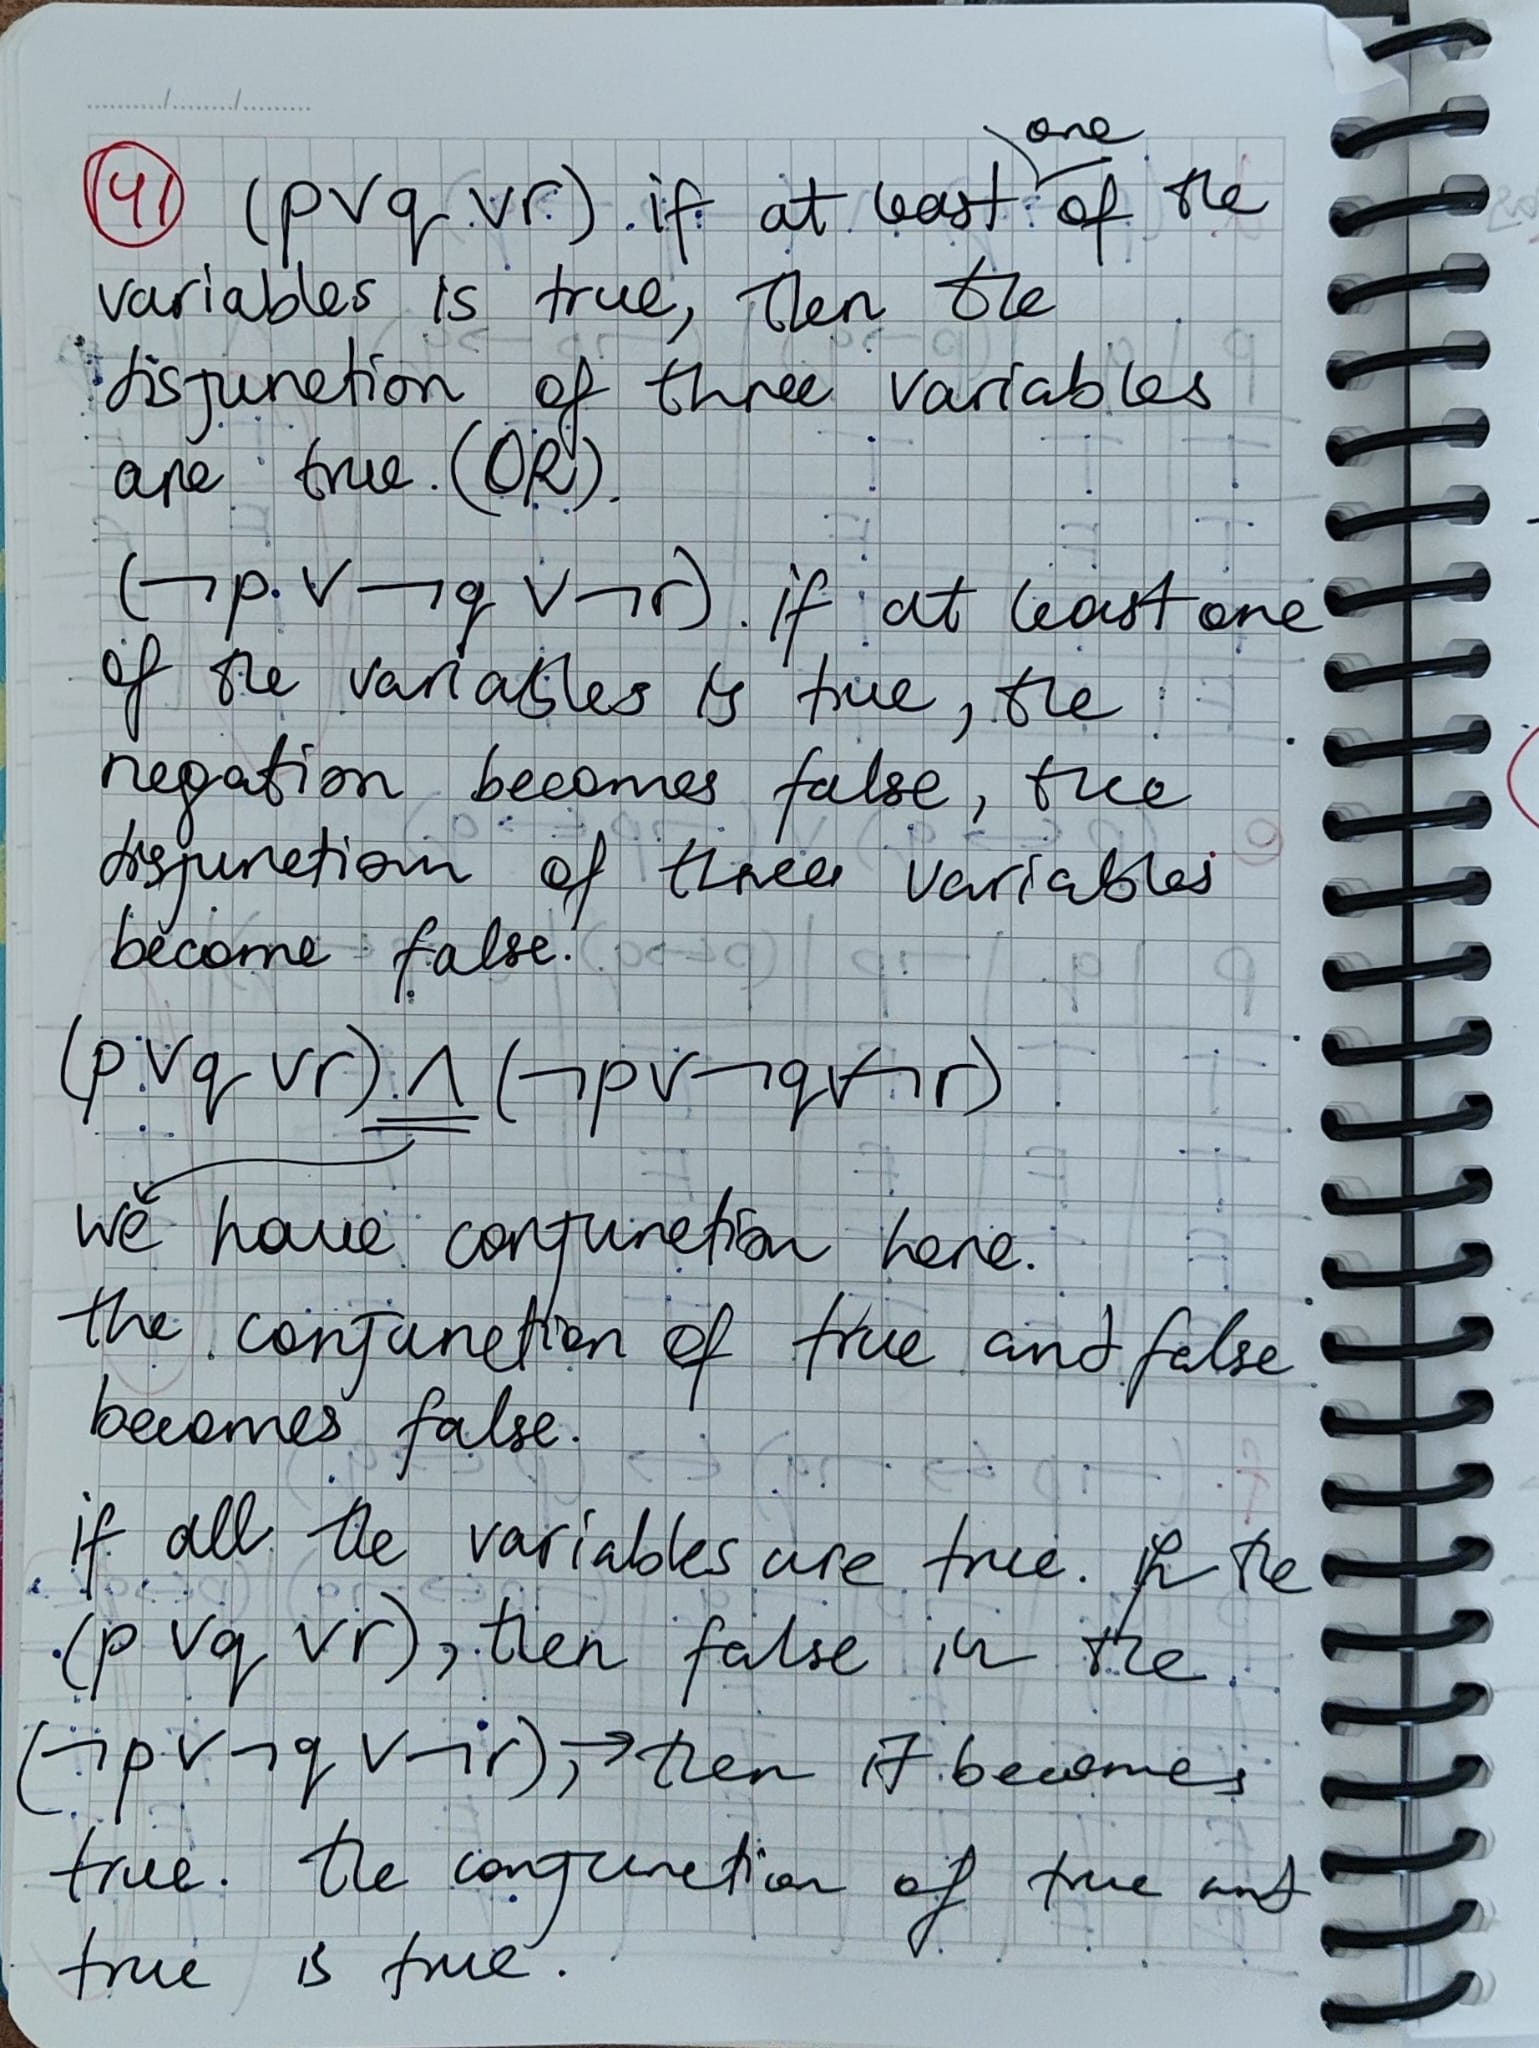 41 (p∨q∨r). if at least one of the
variables is true, then the
disjunction of three variables
are true. (OR).
(¬p∨¬q∨¬r). if at least one
of the variables is true, the
negation becomes false, the
disjunction of three variables
become false.
(p∨q∨r)∧(¬p∨¬q∨¬r)
we have conjunction here.
the conjunction of true and false
becomes false.
if all the variables are true. in the
(p∨q∨r), then false in the
(¬p∨¬q∨¬r), → then it becomes
true. the conjunction of true and
true is true.